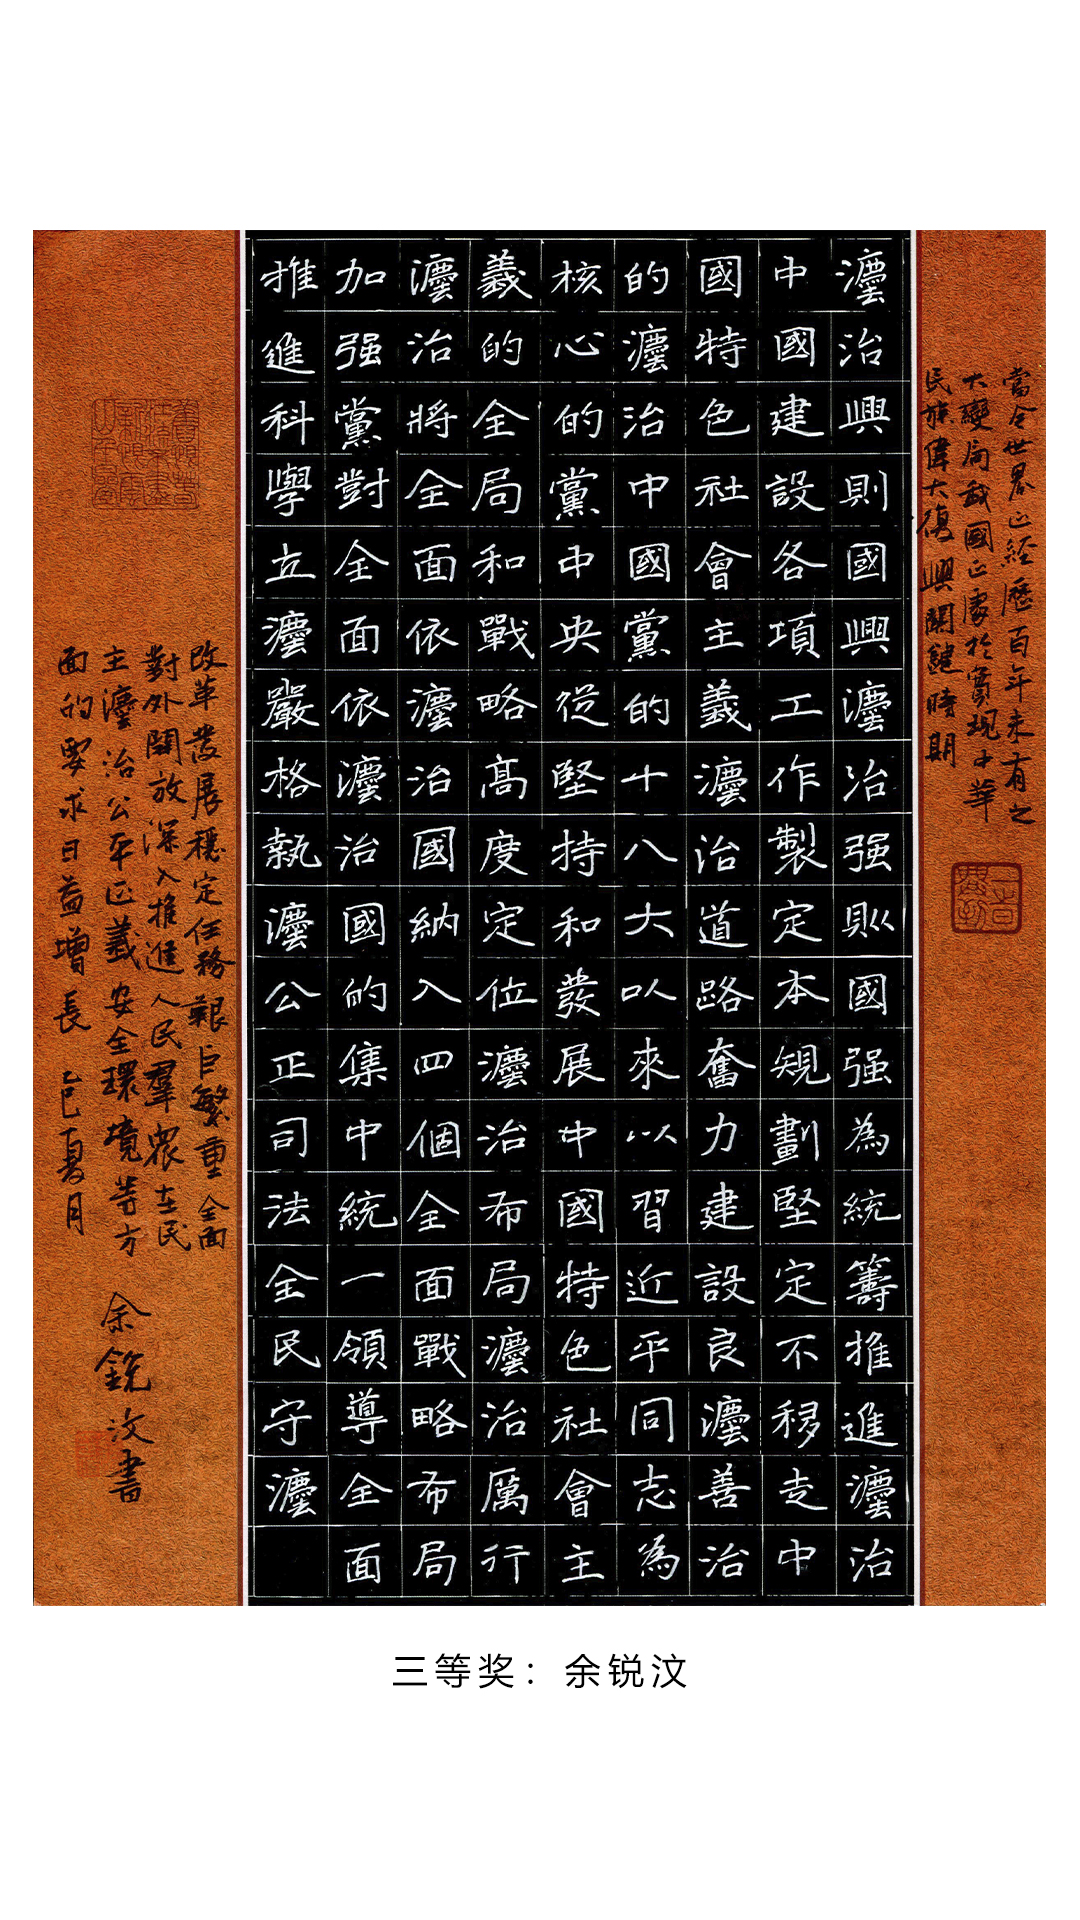 當今世界正經歷百年未有之
大變局我國正處於實現中華
民族偉大復興關鍵時期
灋治興則國興灋治强則國强為統籌推進灋治
中國建設各項工作製定本規劃堅定不移走中
國特色社會主義灋治道路奮力建設良灋善治
的灋治中國黨的十八大以來以習近平同志為
核心的黨中央從堅持和發展中國特色社會主
義的全局和戰略高度定位灋治布局灋治厲行
灋治將全面依灋治國納入四個全面戰略布局
加强黨對全面依灋治國的集中統一領導全面
推進科學立灋嚴格執灋公正司法全民守灋
改革發展穩定任務艱巨繁重全面
對外開放深入推進人民羣眾在民
主灋治公平正義安全環境等方
面的要求日益增長 乙巳夏月
余銳汶書
三等奖：余锐汶